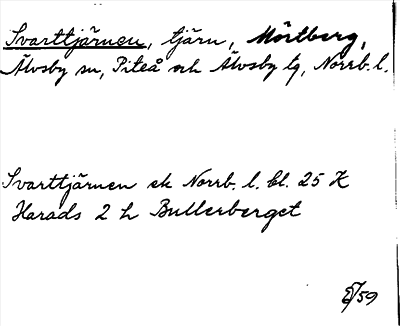 Svarttjärnen, tjärn, Mörtberg,
Älvsby sn, Piteå och Älvsby tg, Norrb. l.
Svarttjärnen ek Norrb. l. bl. 25 K
Harads 2 h Bullerberget
/59